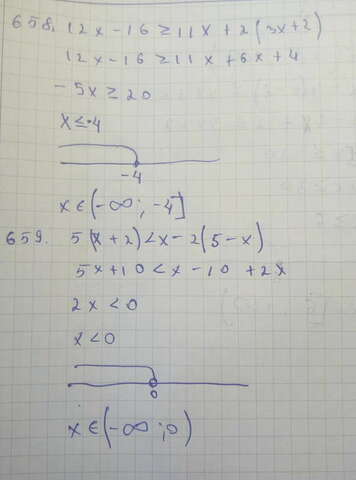 658. 12x-16≥11x+2(3x+2)
12x-16≥11x+6x+4
-5x≥20
x≤-4
-4
x∈(-∞;-4]
659. 5(x+2)<x-2(5-x)
5x+10<x-10+2x
2x<0
x<0
0
x∈(-∞;0)